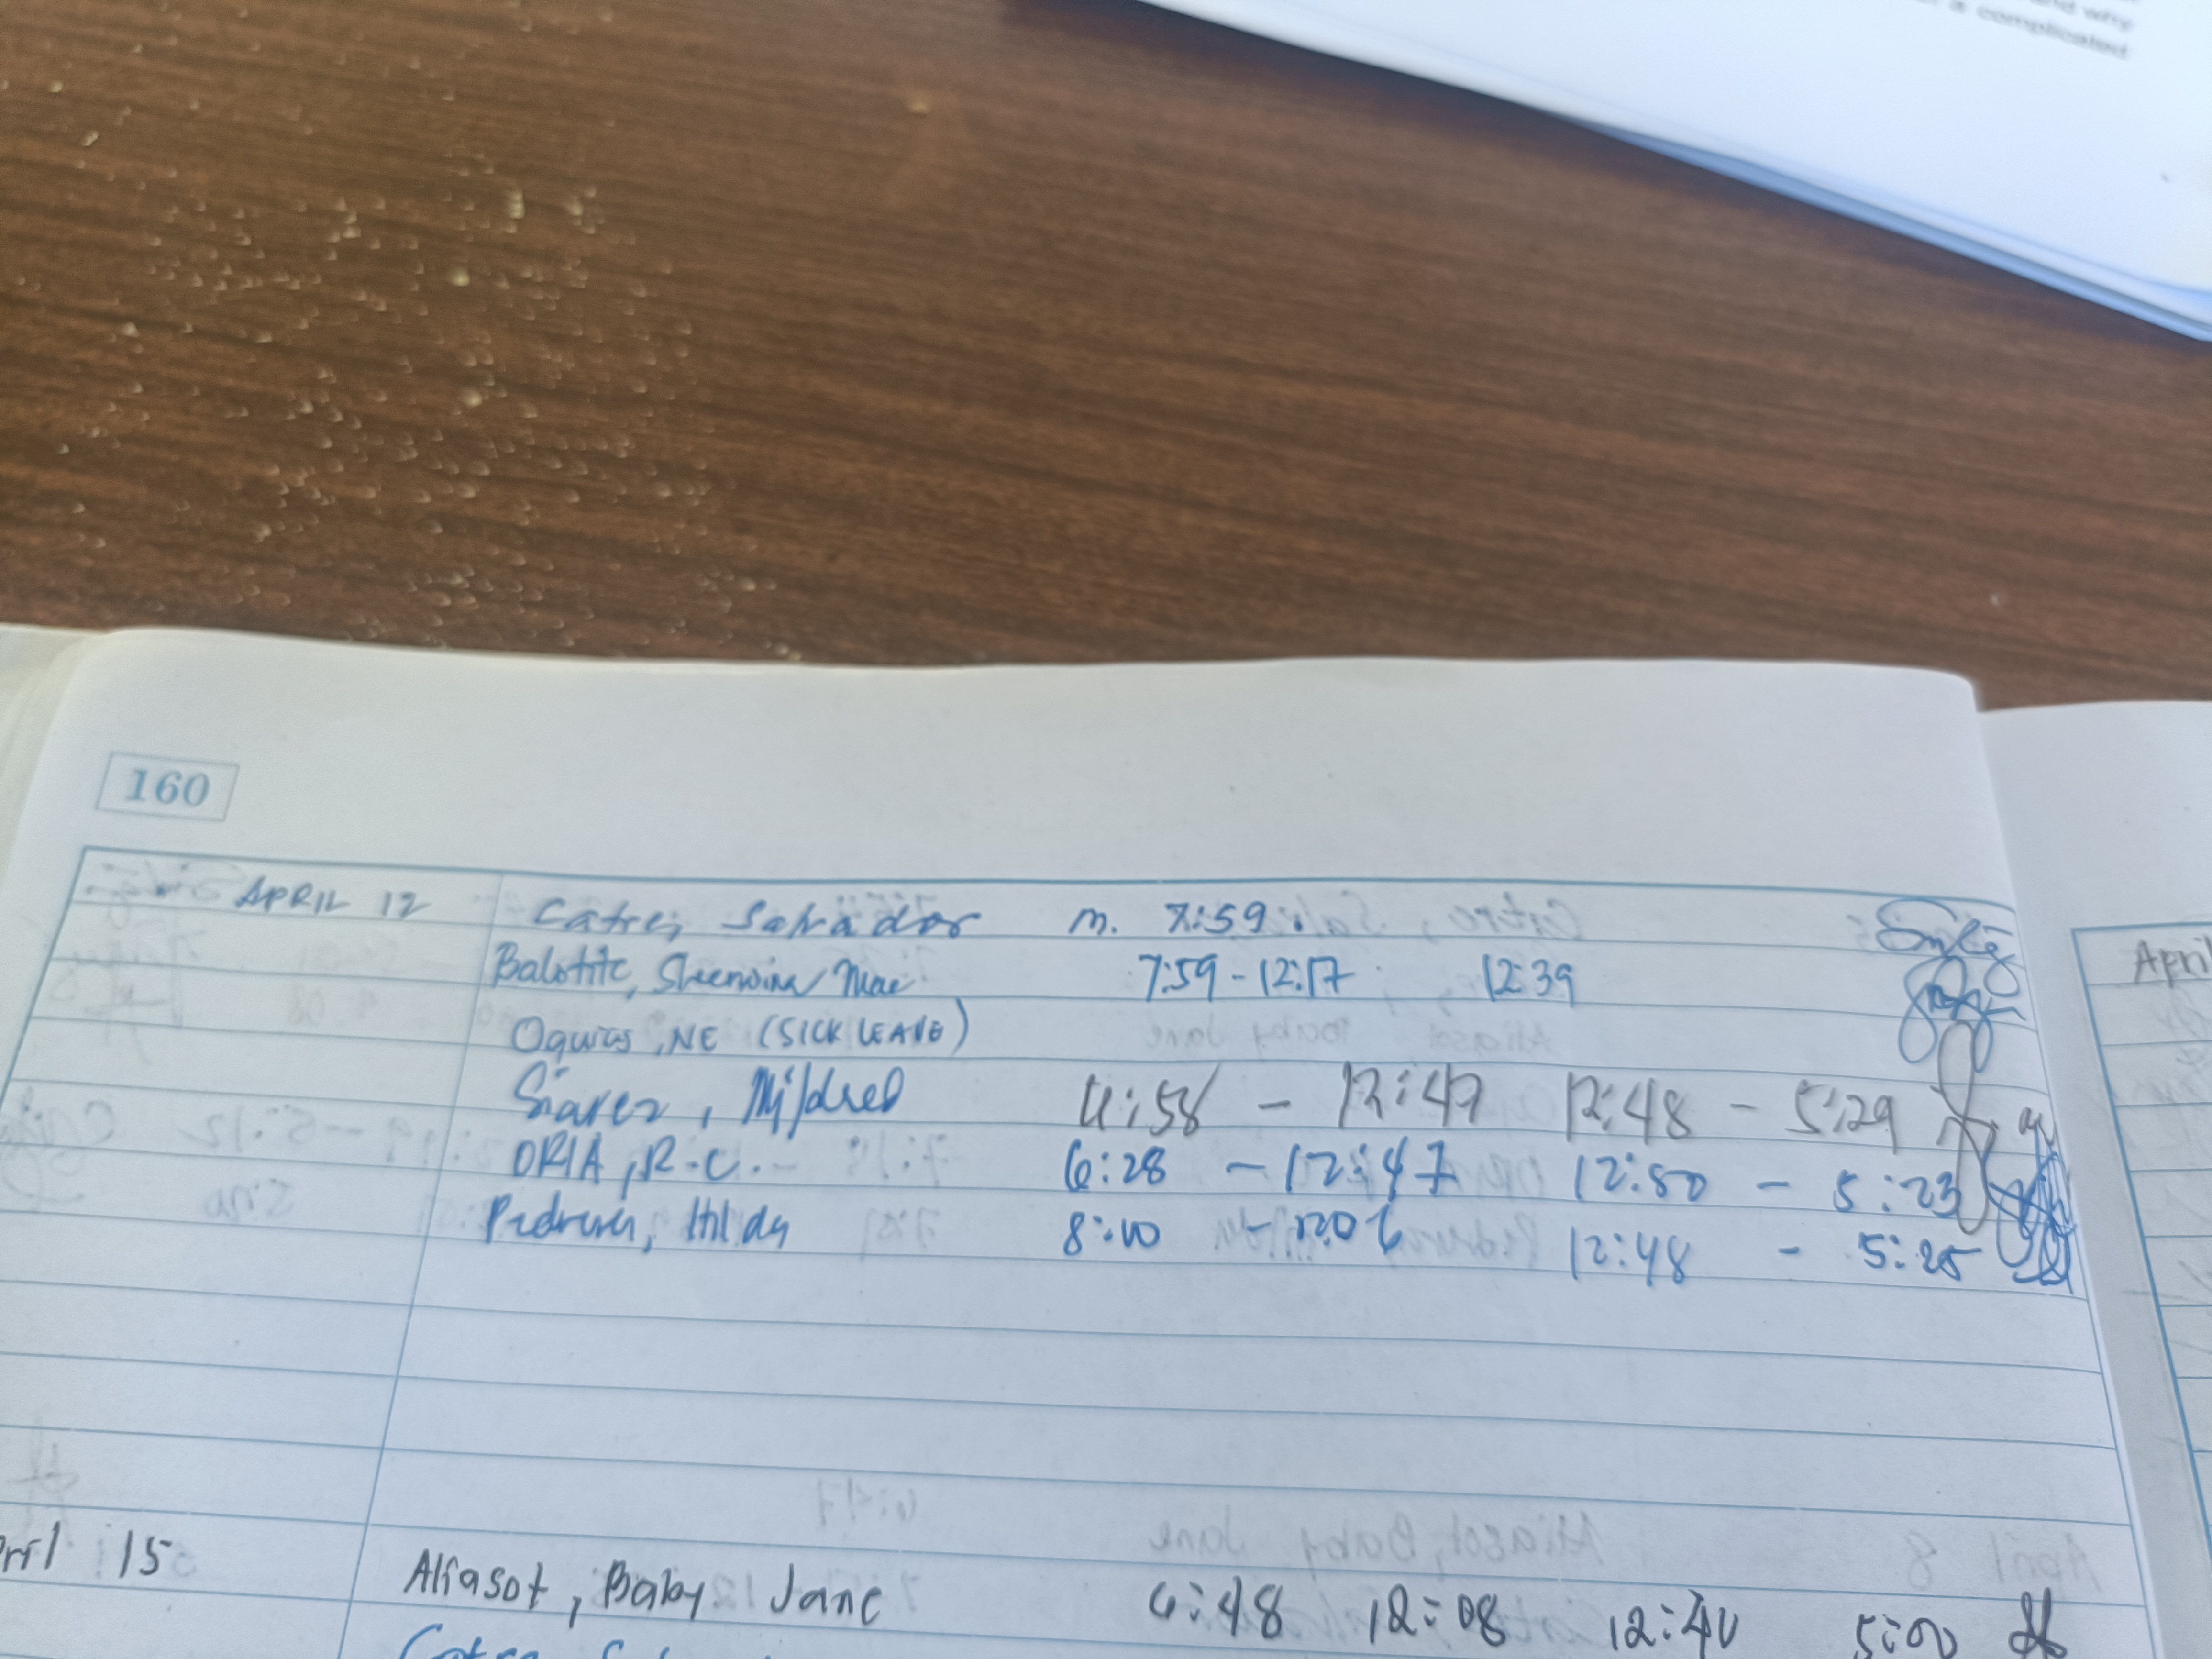 and why
a complicated
160
APRIL 12 Catre, Salvador m. 7:59
Balotite, Sheenvina Mae 7:59 - 12:17 12:39
NE (SICK LEAVE)
Suarez, Mildred 6:58 - 12:47 12:48 - 5:29
ORIA, R.C. 6:28 - 12:47 12:50 - 5:23
Hilda 8:00 - 12:06 12:48 - 5:25
April
April 15 Aliasot, Baby Jane 6:48 12:08 12:40 5:00